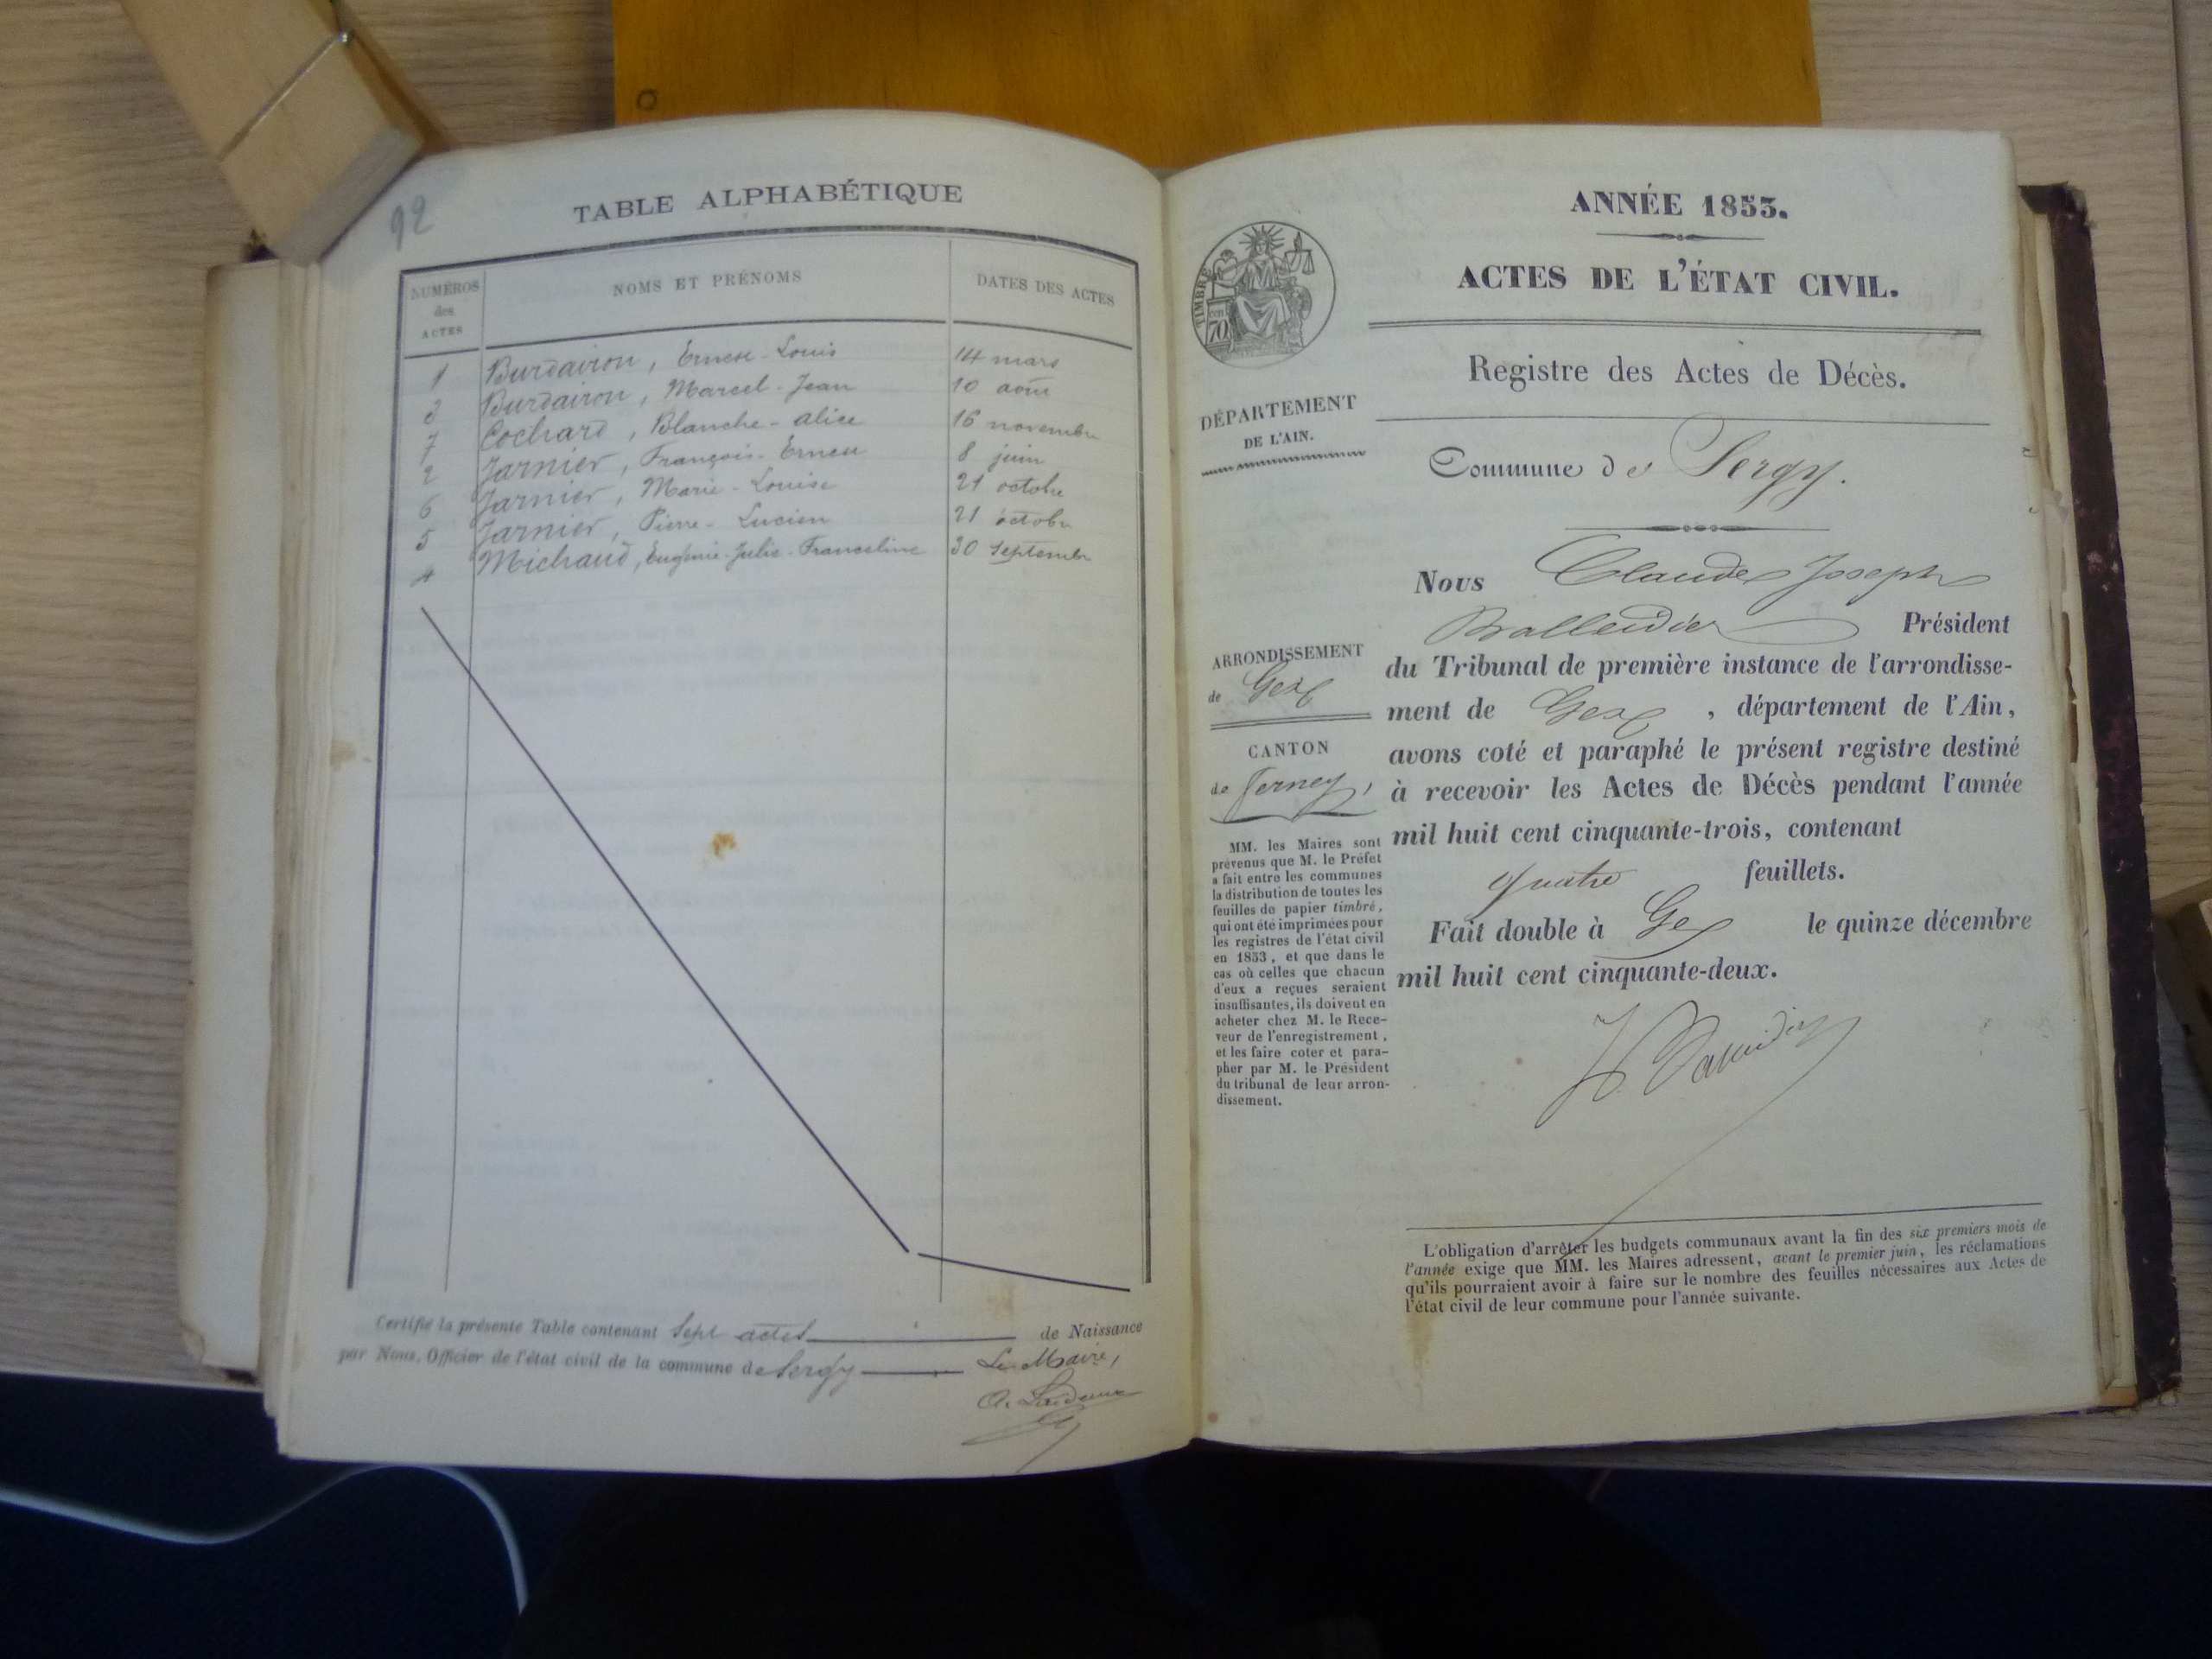 92
TABLE ALPHABÉTIQUE
NUMÉROS des ACTES NOMS ET PRÉNOMS DATES DES ACTES
1 Burdairon, Ernest-Louis 14 mars
3 Burdairon, Marcel-Jean 10 août
7 Cochard, Blanche-Alice 16 novembre
2 Jarnier, François-Ernest 8 juin
6 Jarnier, Marie-Louise 21 octobre
5 Jarnier, Pierre-Lucien 21 octobre
4 Michaud, Eugénie-Julie-Franceline 30 septembre
Certifié la présente Table contenant sept actes de Naissance
par Nous, Officier de l'état civil de la commune de Sergy Le Maire,
ANNÉE 1853.
ACTES DE L'ÉTAT CIVIL.
TIMBRE
cen
70
Registre des Actes de Décès.
DÉPARTEMENT
DE L'AIN.
Commune de Sergy.
ARRONDISSEMENT
de Gex
CANTON
de Ferney,
MM. les Maires sont
prévenus que M. le Préfet
a fait entre les communes
la distribution de toutes les
feuilles de papier timbré,
qui ont été imprimées pour
les registres de l'état civil
en 1853, et que dans le
cas où celles que chacun
d'eux a reçues seraient
insuffisantes, ils doivent en
acheter chez M. le Rece-
veur de l'enregistrement,
et les faire coter et para-
pher par M. le Président
du tribunal de leur arron-
dissement.
Nous Claude Joseph
Balleidier Président
du Tribunal de première instance de l'arrondisse-
ment de Gex, département de l'Ain,
avons coté et paraphé le présent registre destiné
à recevoir les Actes de Décès pendant l'année
mil huit cent cinquante-trois, contenant
quatre feuillets.
Fait double à Gex le quinze décembre
mil huit cent cinquante-deux.
L'obligation d'arrêter les budgets communaux avant la fin des six premiers mois de
l'année exige que MM. les Maires adressent, avant le premier juin, les réclamations
qu'ils pourraient avoir à faire sur le nombre des feuilles nécessaires aux Actes de
l'état civil de leur commune pour l'année suivante.